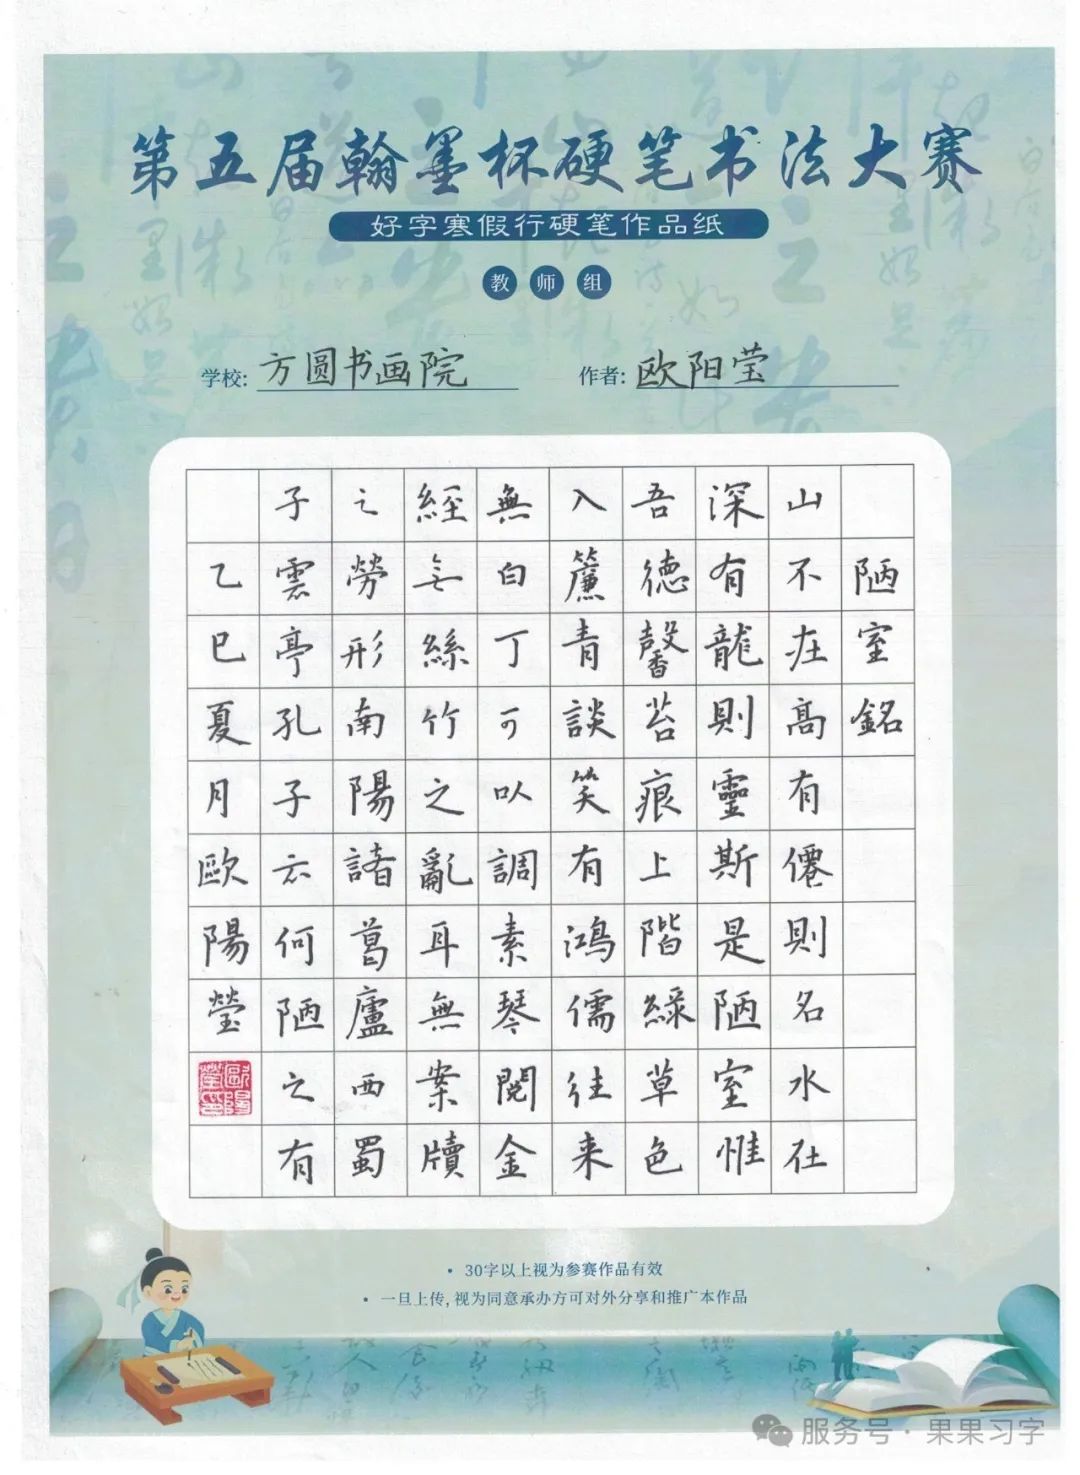 第五届翰墨杯硬笔书法大赛
好字寒假行硬笔作品纸
教师组
学校: 方圆书画院
作者: 欧阳莹
陋室銘
山不在高有僊則名水在
深有龍則靈斯是陋室惟
吾德馨苔痕上階綠草色
入簾青談笑有鴻儒往来
無白丁可以調素琴閱金
經無絲竹之亂耳無案牘
之勞形南陽諸葛廬西蜀
子雲亭孔子云何陋之有
乙巳夏月歐陽瑩
歐陽瑩印
• 30字以上视为参赛作品有效
• 一旦上传,视为同意承办方可对外分享和推广本作品
服务号·果果习字